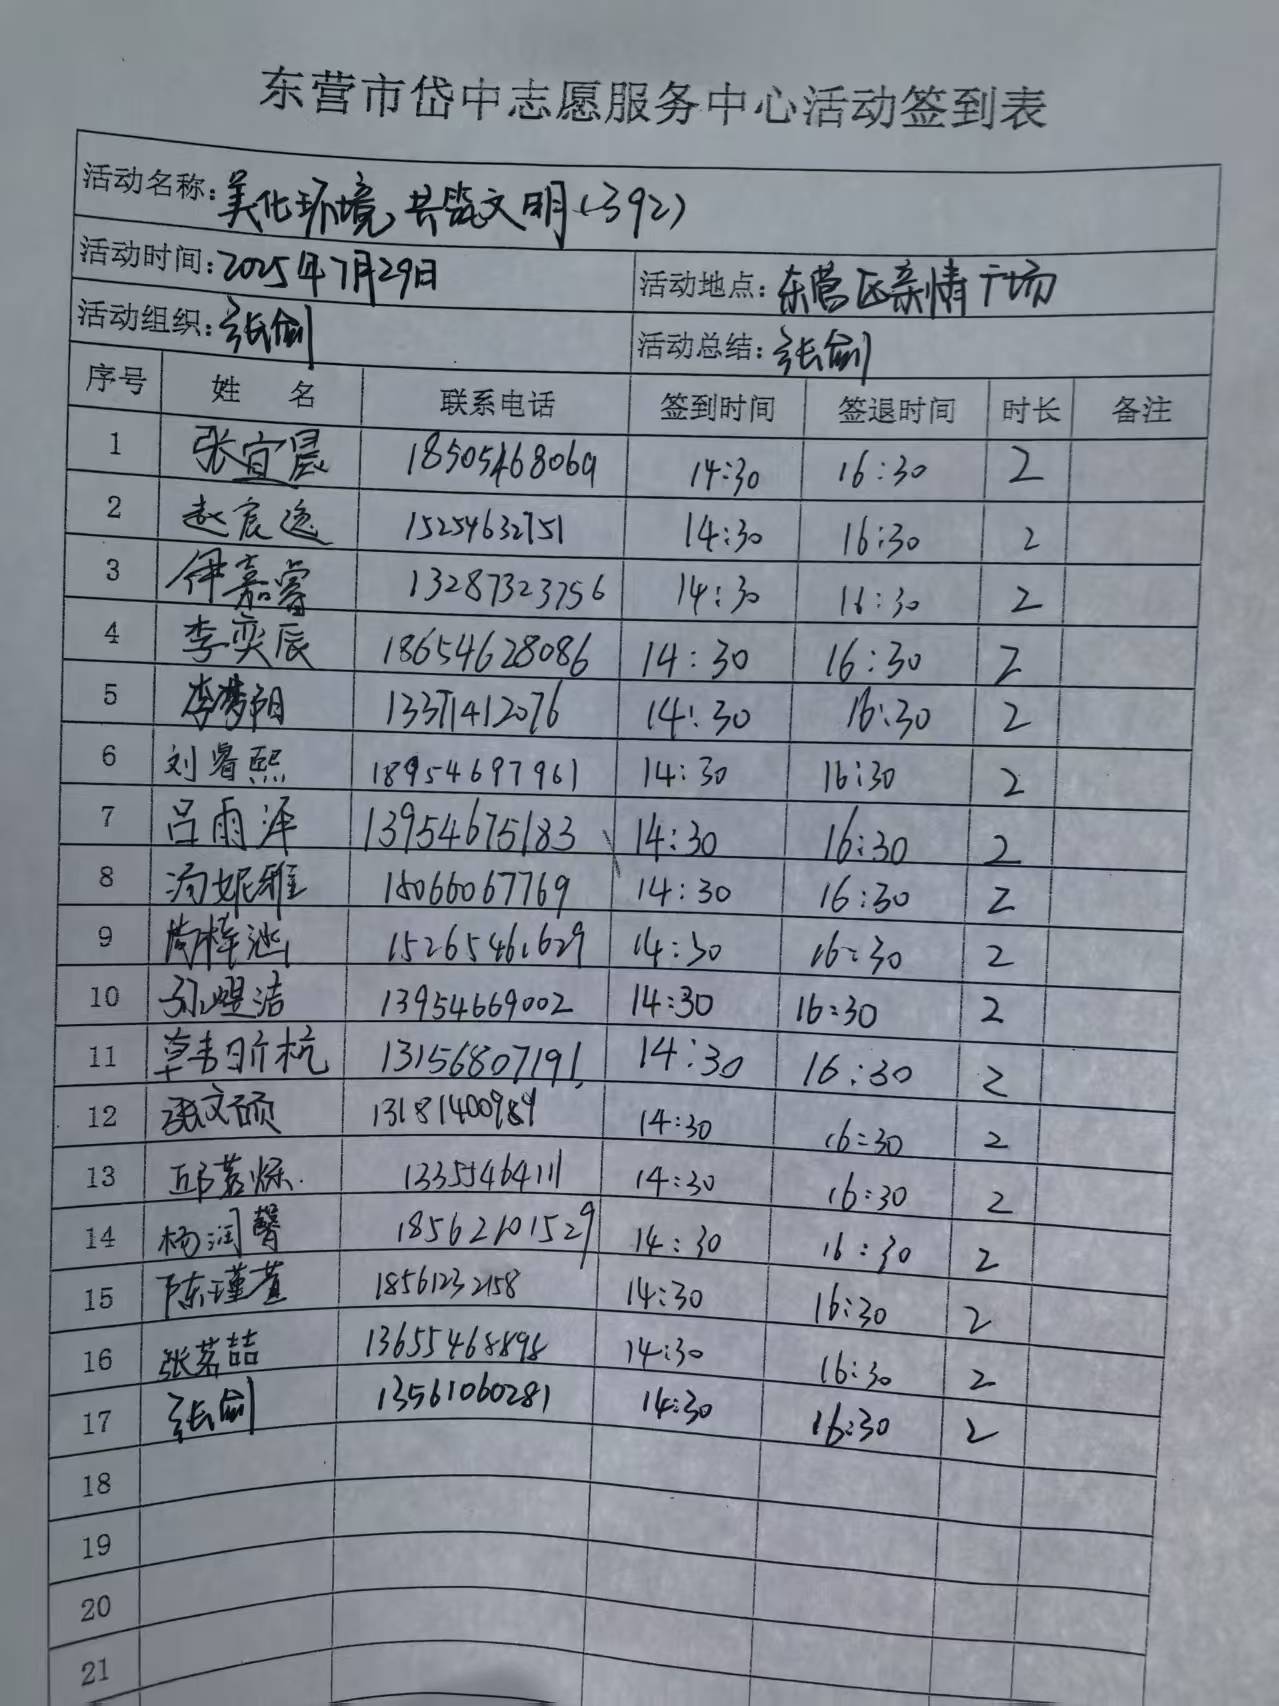 东营市岱中志愿服务中心活动签到表
活动名称: 美化环境,共筑文明(392)
活动时间: 2025年7月29日 活动地点: 东营区亲情广场
活动组织: 张剑 活动总结: 张剑
序号 姓 名 联系电话 签到时间 签退时间 时长 备注
1 张宜晨 18505468069 14:30 16:30 2
2 赵宸逸 15254632751 14:30 16:30 2
3 伊嘉睿 13287323756 14:30 16:30 2
4 李奕辰 18654628086 14:30 16:30 2
5 李梦阳 13371412076 14:30 16:30 2
6 刘睿熙 18954697961 14:30 16:30 2
7 吕雨泽 13954675183 14:30 16:30 2
8 汤妮雅 15066067769 14:30 16:30 2
9 15265461629 14:30 16:30 2
10 孙煜洁 13954669002 14:30 16:30 2
11 13156807191 14:30 16:30 2
12 张文硕 13181400989 14:30 16:30 2
13 邱茗烁 13355464111 14:30 16:30 2
14 杨润馨 18562101529 14:30 16:30 2
15 陈瑾萱 18561232158 14:30 16:30 2
16 张茗喆 13655468898 14:30 16:30 2
17 张剑 13561060281 14:30 16:30 2
18
19
20
21